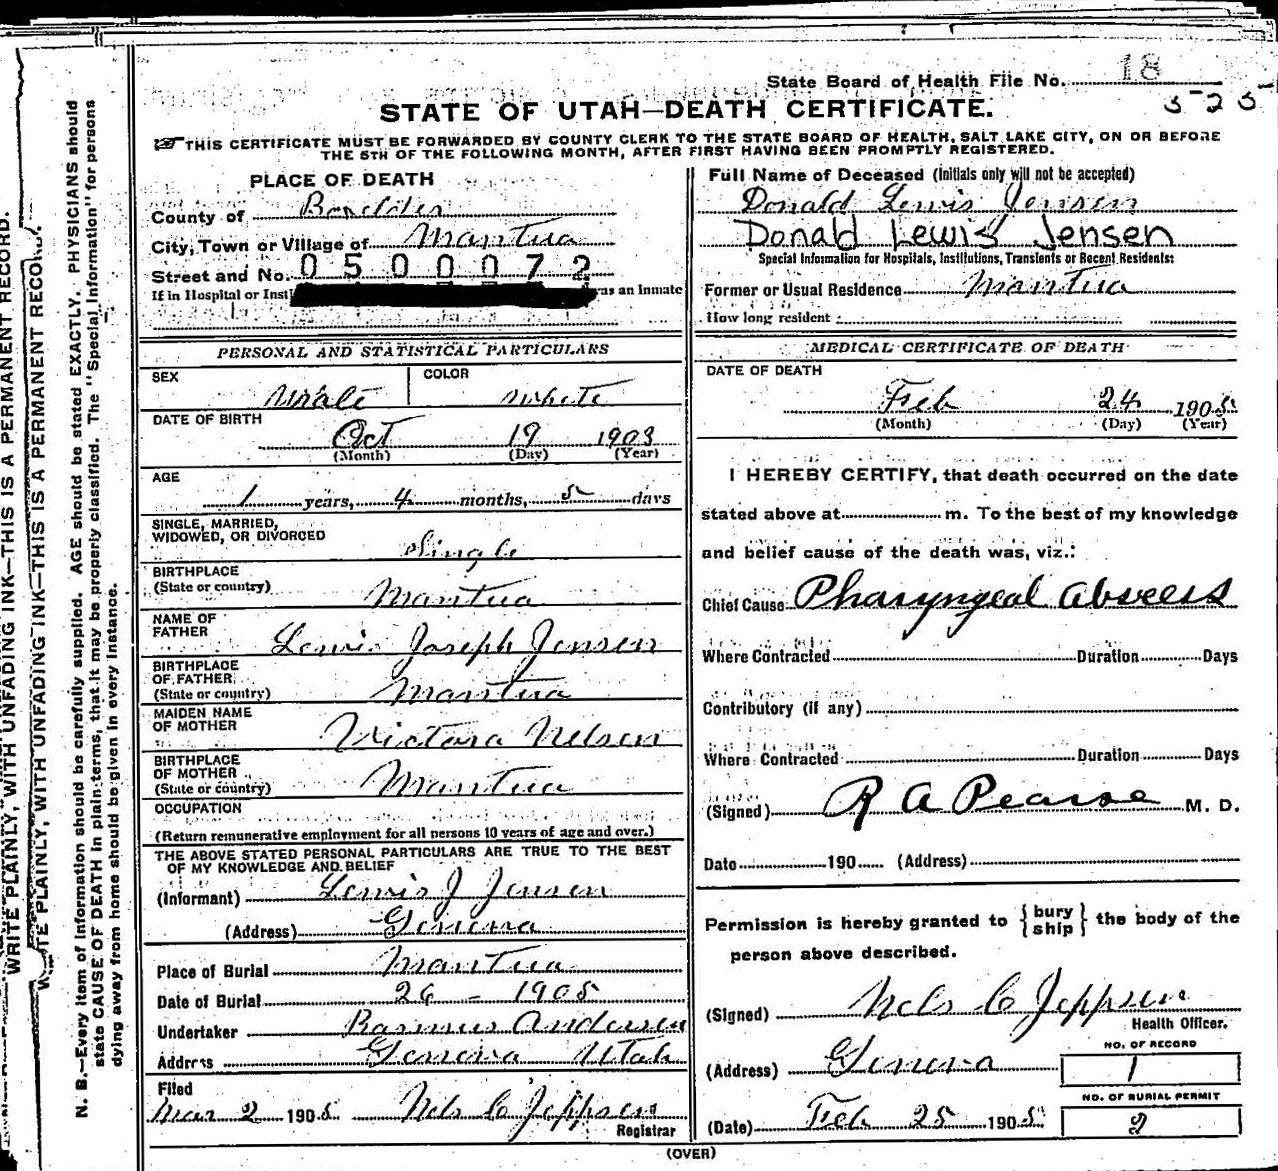 State Board of Health File No. 18
525
STATE OF UTAH—DEATH CERTIFICATE.
THIS CERTIFICATE MUST BE FORWARDED BY COUNTY CLERK TO THE STATE BOARD OF HEALTH, SALT LAKE CITY, ON OR BEFORE
THE 5TH OF THE FOLLOWING MONTH, AFTER FIRST HAVING BEEN PROMPTLY REGISTERED.
WRITE PLAINLY, WITH UNFADING INK—THIS IS A PERMANENT RECORD.
WRITE PLAINLY, WITH UNFADING INK—THIS IS A PERMANENT RECORD.
N. B.—Every item of information should be carefully supplied. AGE should be stated EXACTLY. PHYSICIANS should
state CAUSE OF DEATH in plain terms, that it may be properly classified. The "Special Information" for persons
dying away from home should be given in every instance.
PLACE OF DEATH
County of Boxelder
City, Town or Village of Mantua
Street and No. 0500072
If in Hospital or Insti was an inmate
PERSONAL AND STATISTICAL PARTICULARS
SEX Male COLOR White
DATE OF BIRTH
Oct 19 1903
(Month) (Day) (Year)
AGE
1 years, 4 months, 5 days
SINGLE, MARRIED,
WIDOWED, OR DIVORCED Single
BIRTHPLACE
(State or country) Mantua
NAME OF
FATHER Lewis Joseph Jensen
BIRTHPLACE
OF FATHER
(State or country) Mantua
MAIDEN NAME
OF MOTHER Victora Nelsen
BIRTHPLACE
OF MOTHER
(State or country) Mantua
OCCUPATION
(Return remunerative employment for all persons 10 years of age and over.)
THE ABOVE STATED PERSONAL PARTICULARS ARE TRUE TO THE BEST
OF MY KNOWLEDGE AND BELIEF
(Informant) Lewis J Jensen
(Address) Geneva
Place of Burial Mantua
Date of Burial 26 - 1905
Undertaker Rasmus Andersen
Address Geneva Utah
Filed
Mar 2 1905 Nels C Jeppsen
Registrar
Full Name of Deceased (Initials only will not be accepted)
Donald Lewis Jensen
Donald Lewis Jensen
Special Information for Hospitals, Institutions, Transients or Recent Residents:
Former or Usual Residence Mantua
How long resident
MEDICAL CERTIFICATE OF DEATH
DATE OF DEATH
Feb 24 1905
(Month) (Day) (Year)
I HEREBY CERTIFY, that death occurred on the date
stated above at m. To the best of my knowledge
and belief cause of the death was, viz.:
Chief Cause Pharyngeal abscess
Where Contracted Duration Days
Contributory (if any)
Where Contracted Duration Days
(Signed) R A Pearse M. D.
Date 190 (Address)
Permission is hereby granted to {bury ship} the body of the
person above described.
(Signed) Nels C Jeppsen
Health Officer.
(Address) Geneva
NO. OF RECORD
1
(Date) Feb 25 1905
NO. OF BURIAL PERMIT
2
(OVER)